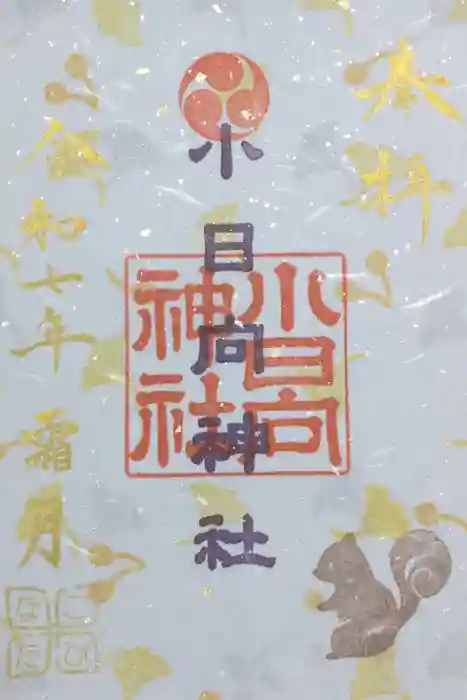 奉拝
小日向神社
小日向
神社
令和七年 霜月
こひ
なた